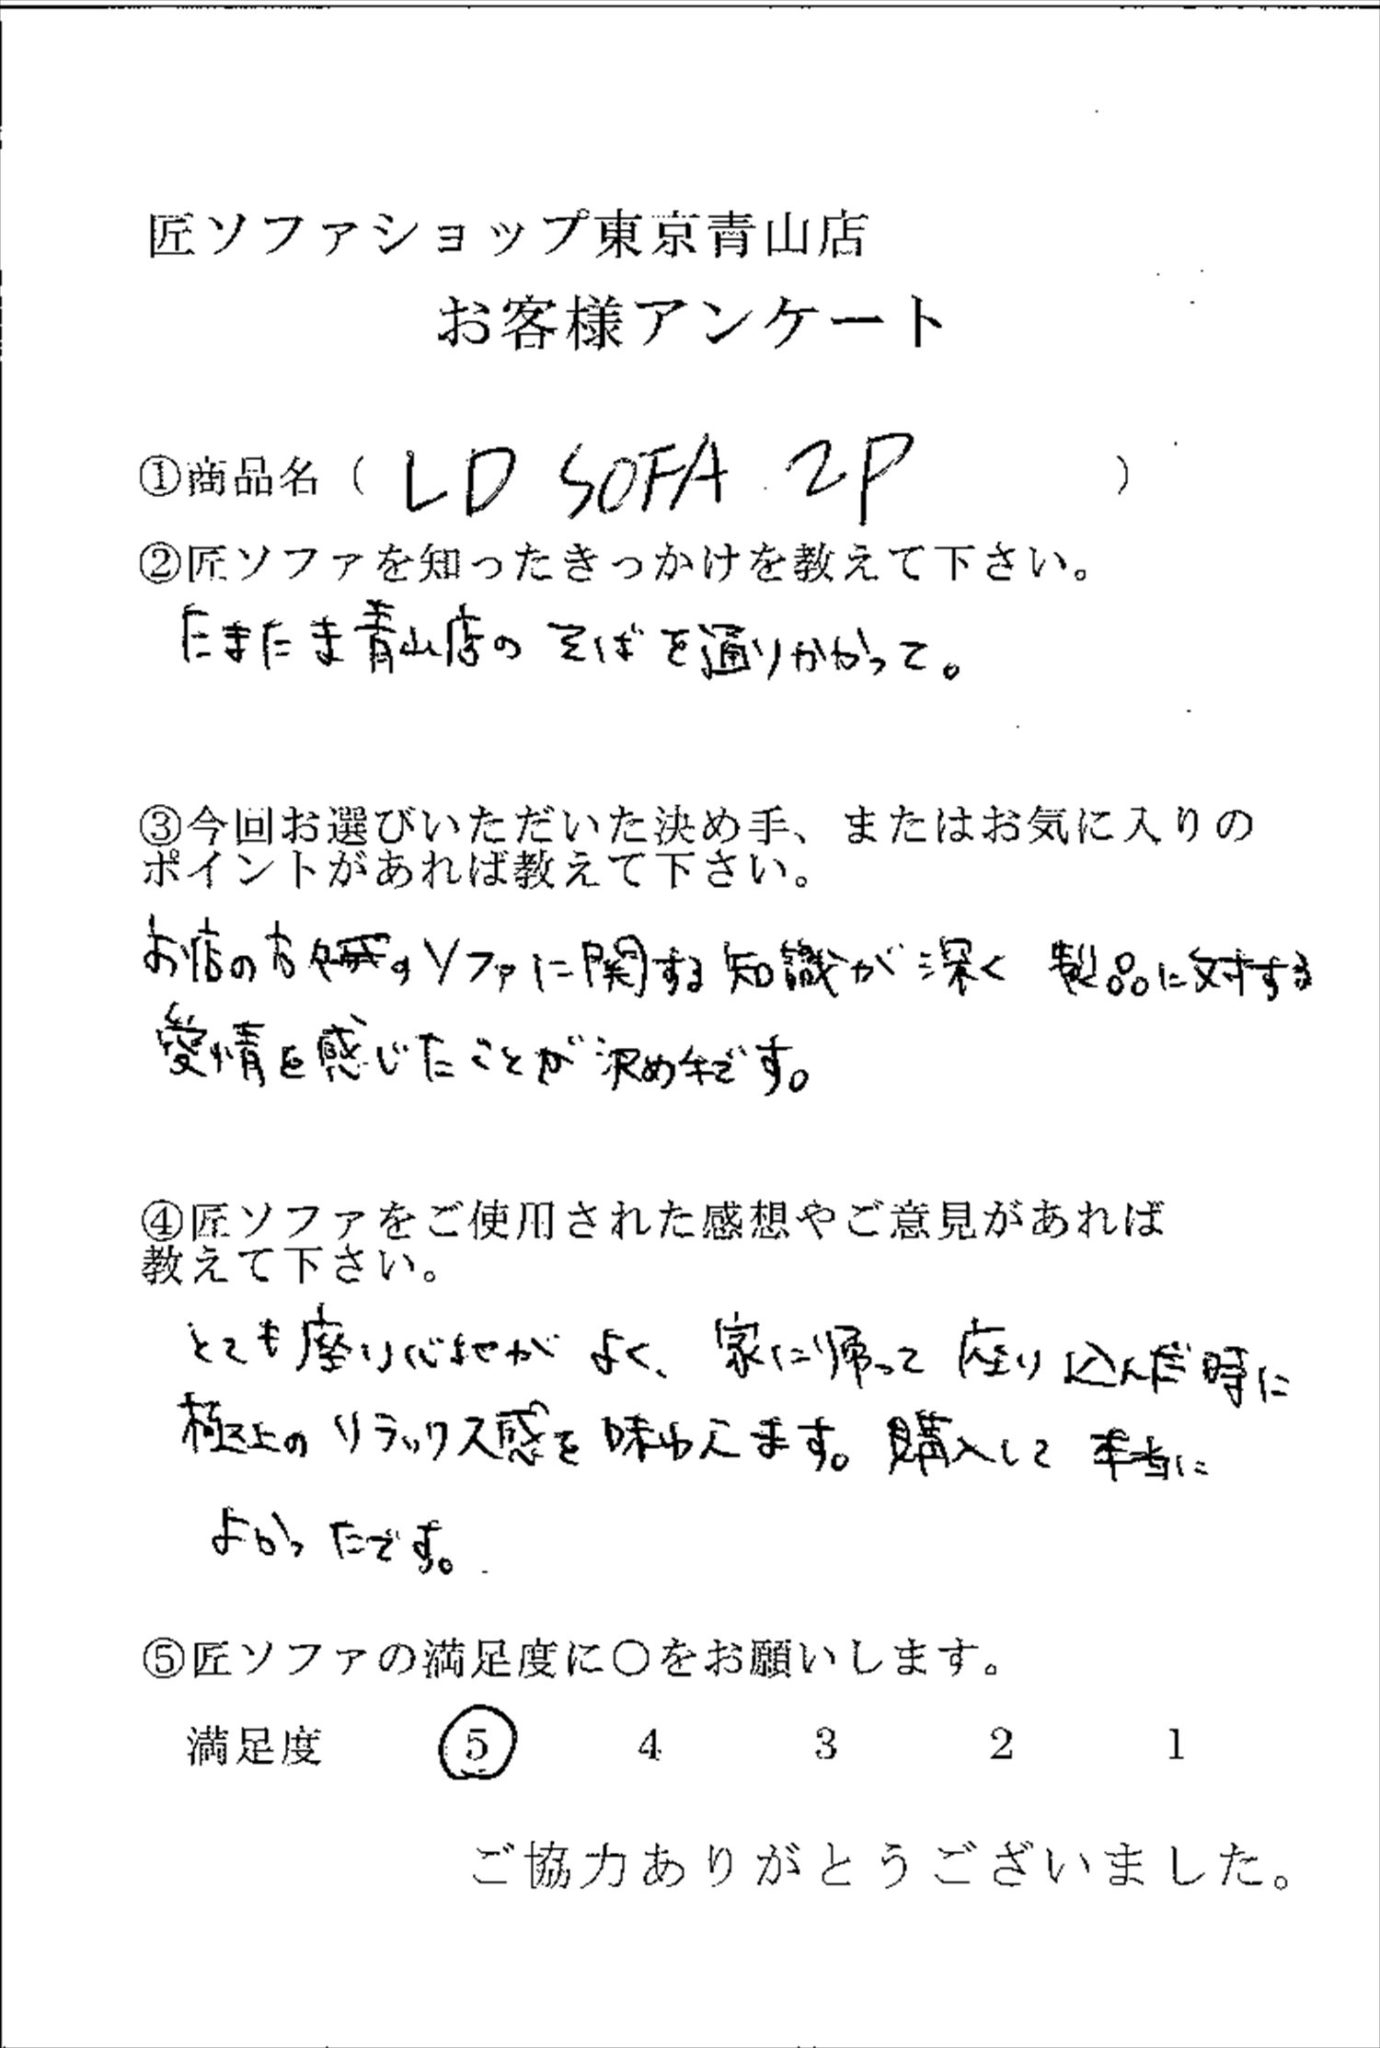 匠ソファショップ東京青山店
お客様アンケート
①商品名（ LD SOFA 2P ）
②匠ソファを知ったきっかけを教えて下さい。
たまたま青山店のそばを通りかかって。
③今回お選びいただいた決め手、またはお気に入りの
ポイントがあれば教えて下さい。
お店の方のソファに関する知識が深く 製品に対する
愛情を感じたことが決め手です。
④匠ソファをご使用された感想やご意見があれば
教えて下さい。
とても座り心地がよく、家に帰って座り込んだ時に
極上のリラックス感を味わえます。購入して本当に
よかったです。
⑤匠ソファの満足度に〇をお願いします。
満足度 5 4 3 2 1
ご協力ありがとうございました。